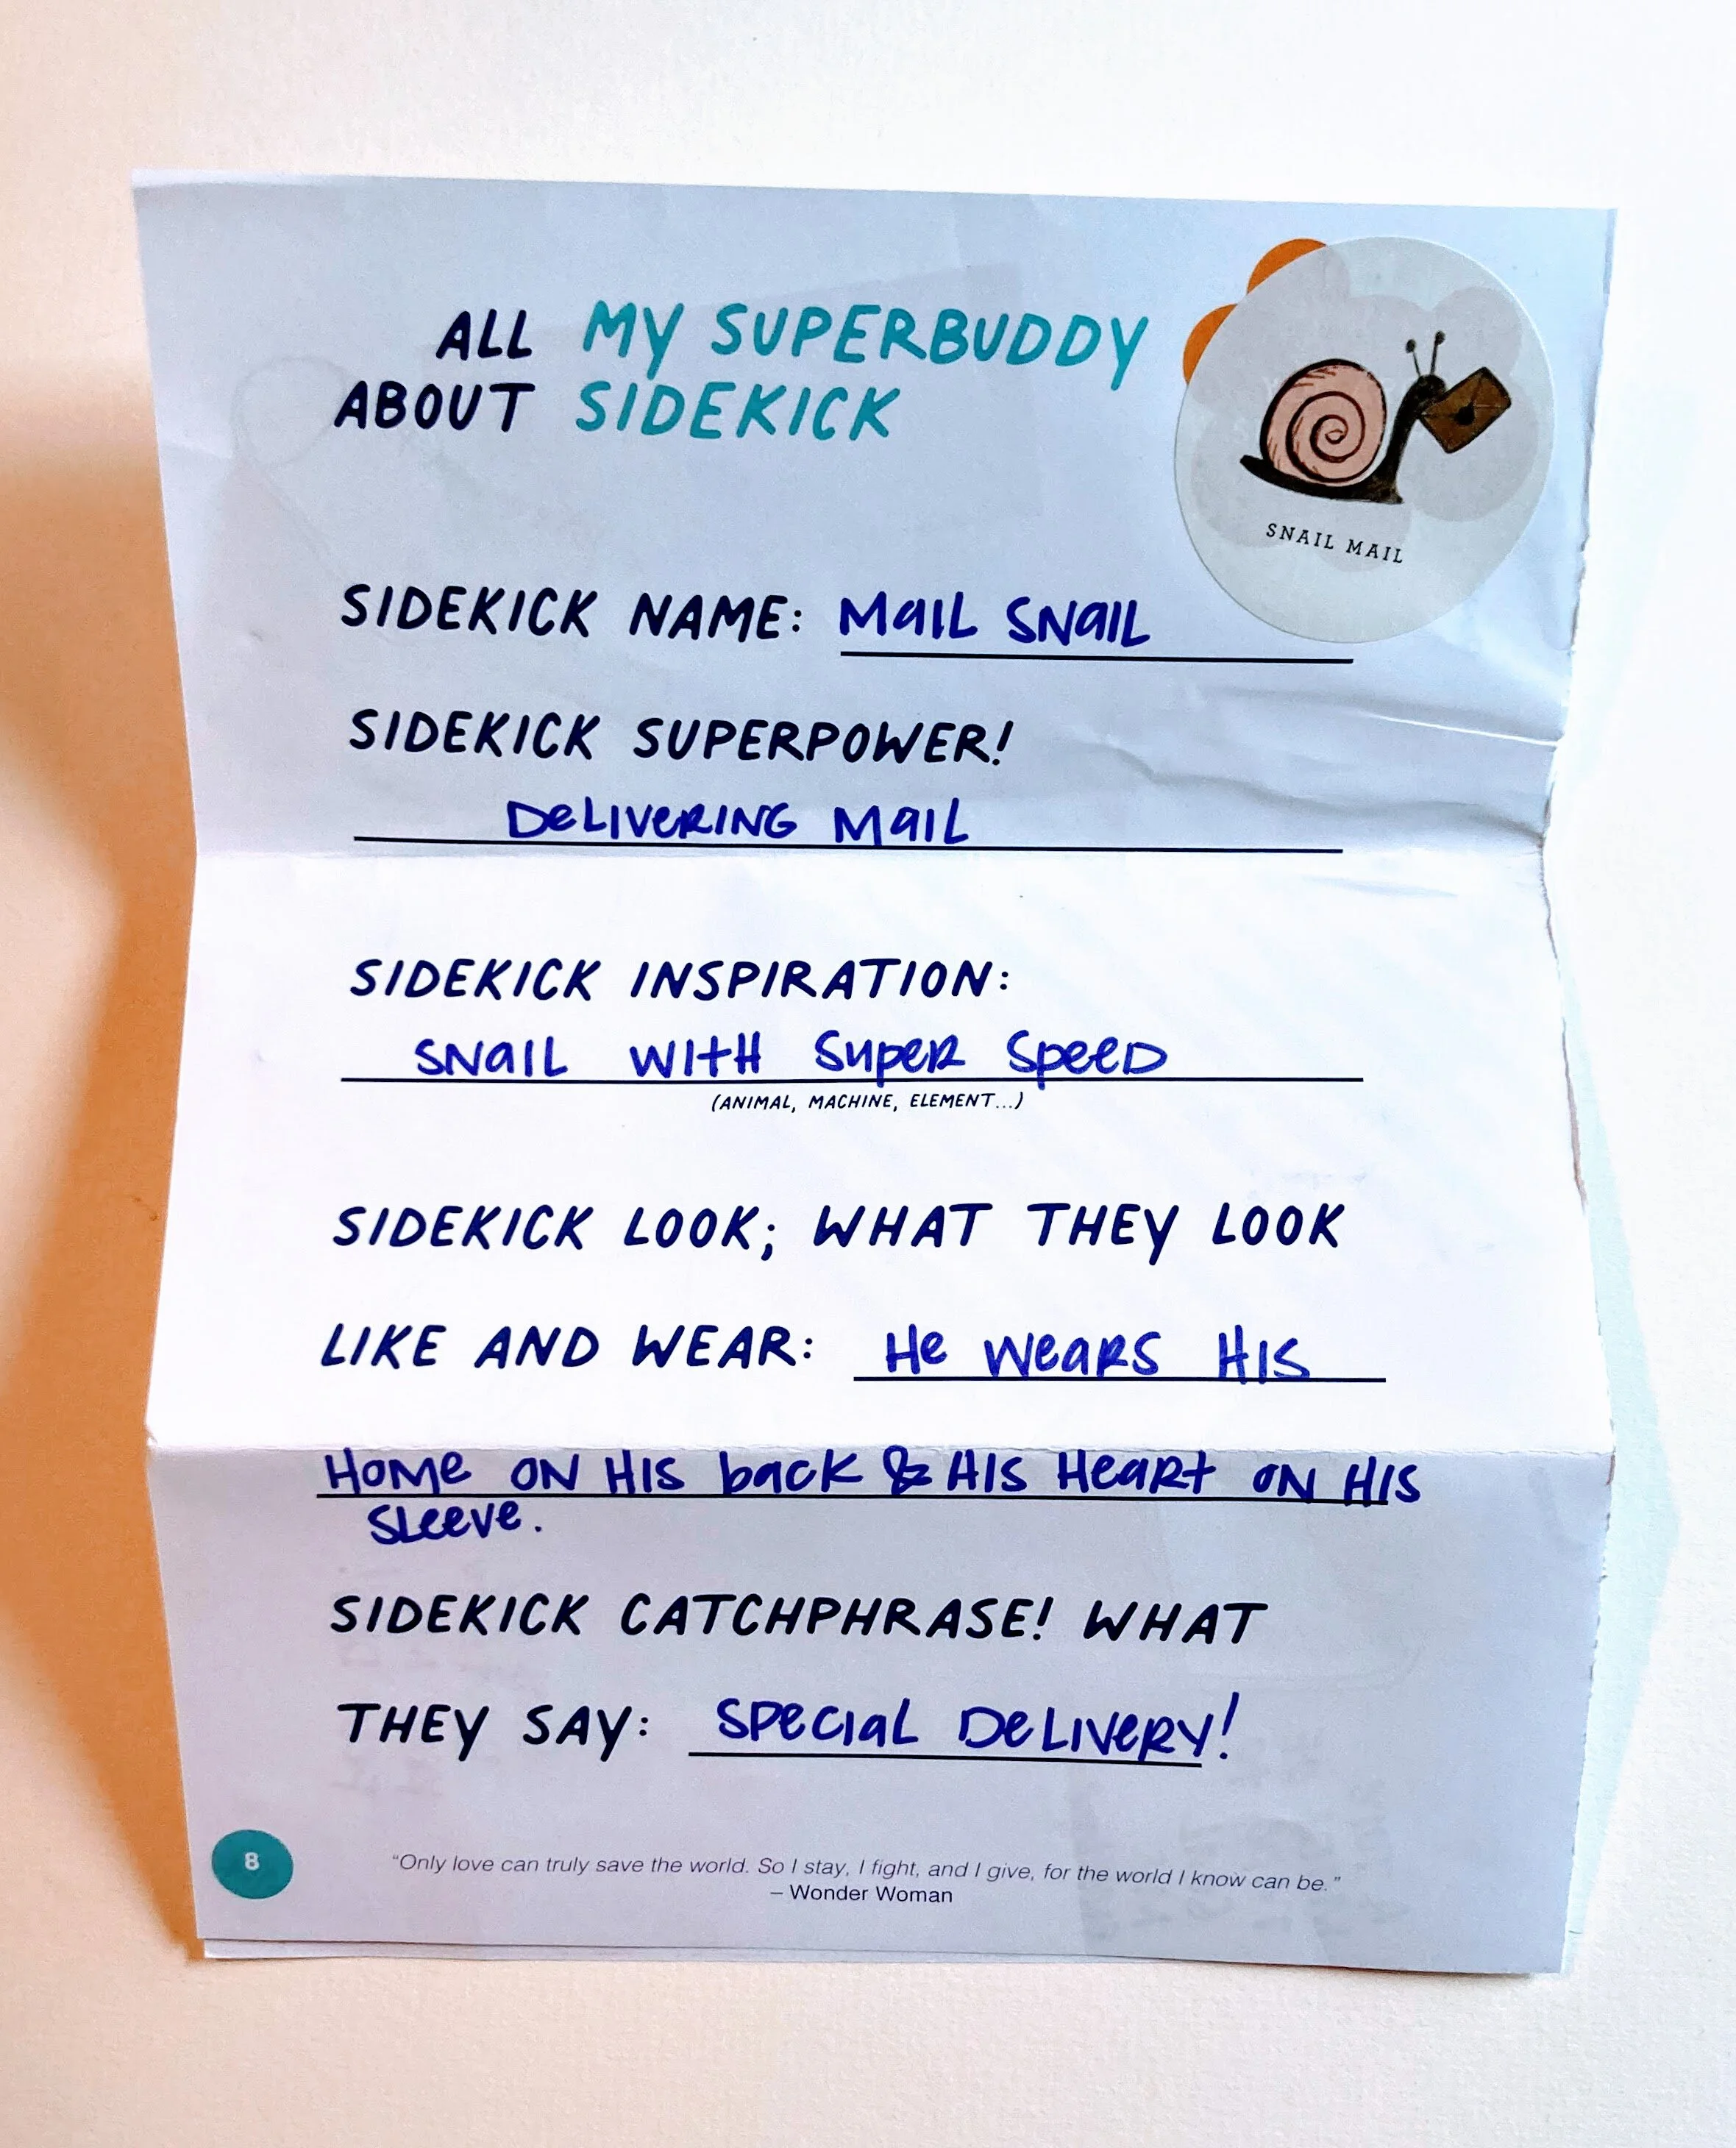 ALL MY SUPERBUDDY
ABOUT SIDEKICK
SNAIL MAIL
SIDEKICK NAME: MaIL SNaIL
SIDEKICK SUPERPOWER!
DeLIVeRING MaIL
SIDEKICK INSPIRATION:
SNaIL WItH SupeR SpeeD
(ANIMAL, MACHINE, ELEMENT...)
SIDEKICK LOOK; WHAT THEY LOOK
LIKE AND WEAR: He WeaRS HIS
HOMe ON HIS back & HIS HeaRt ON HIS
SLeeve.
SIDEKICK CATCHPHRASE! WHAT
THEY SAY: SPecIaL DeLIVeRY!
8
"Only love can truly save the world. So I stay, I fight, and I give, for the world I know can be."
– Wonder Woman